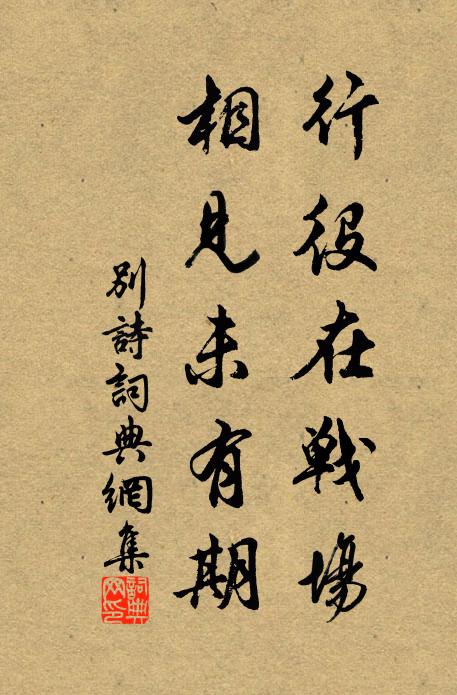 行役在戰場
相見未有期
別詩詞典網集
詞典网印